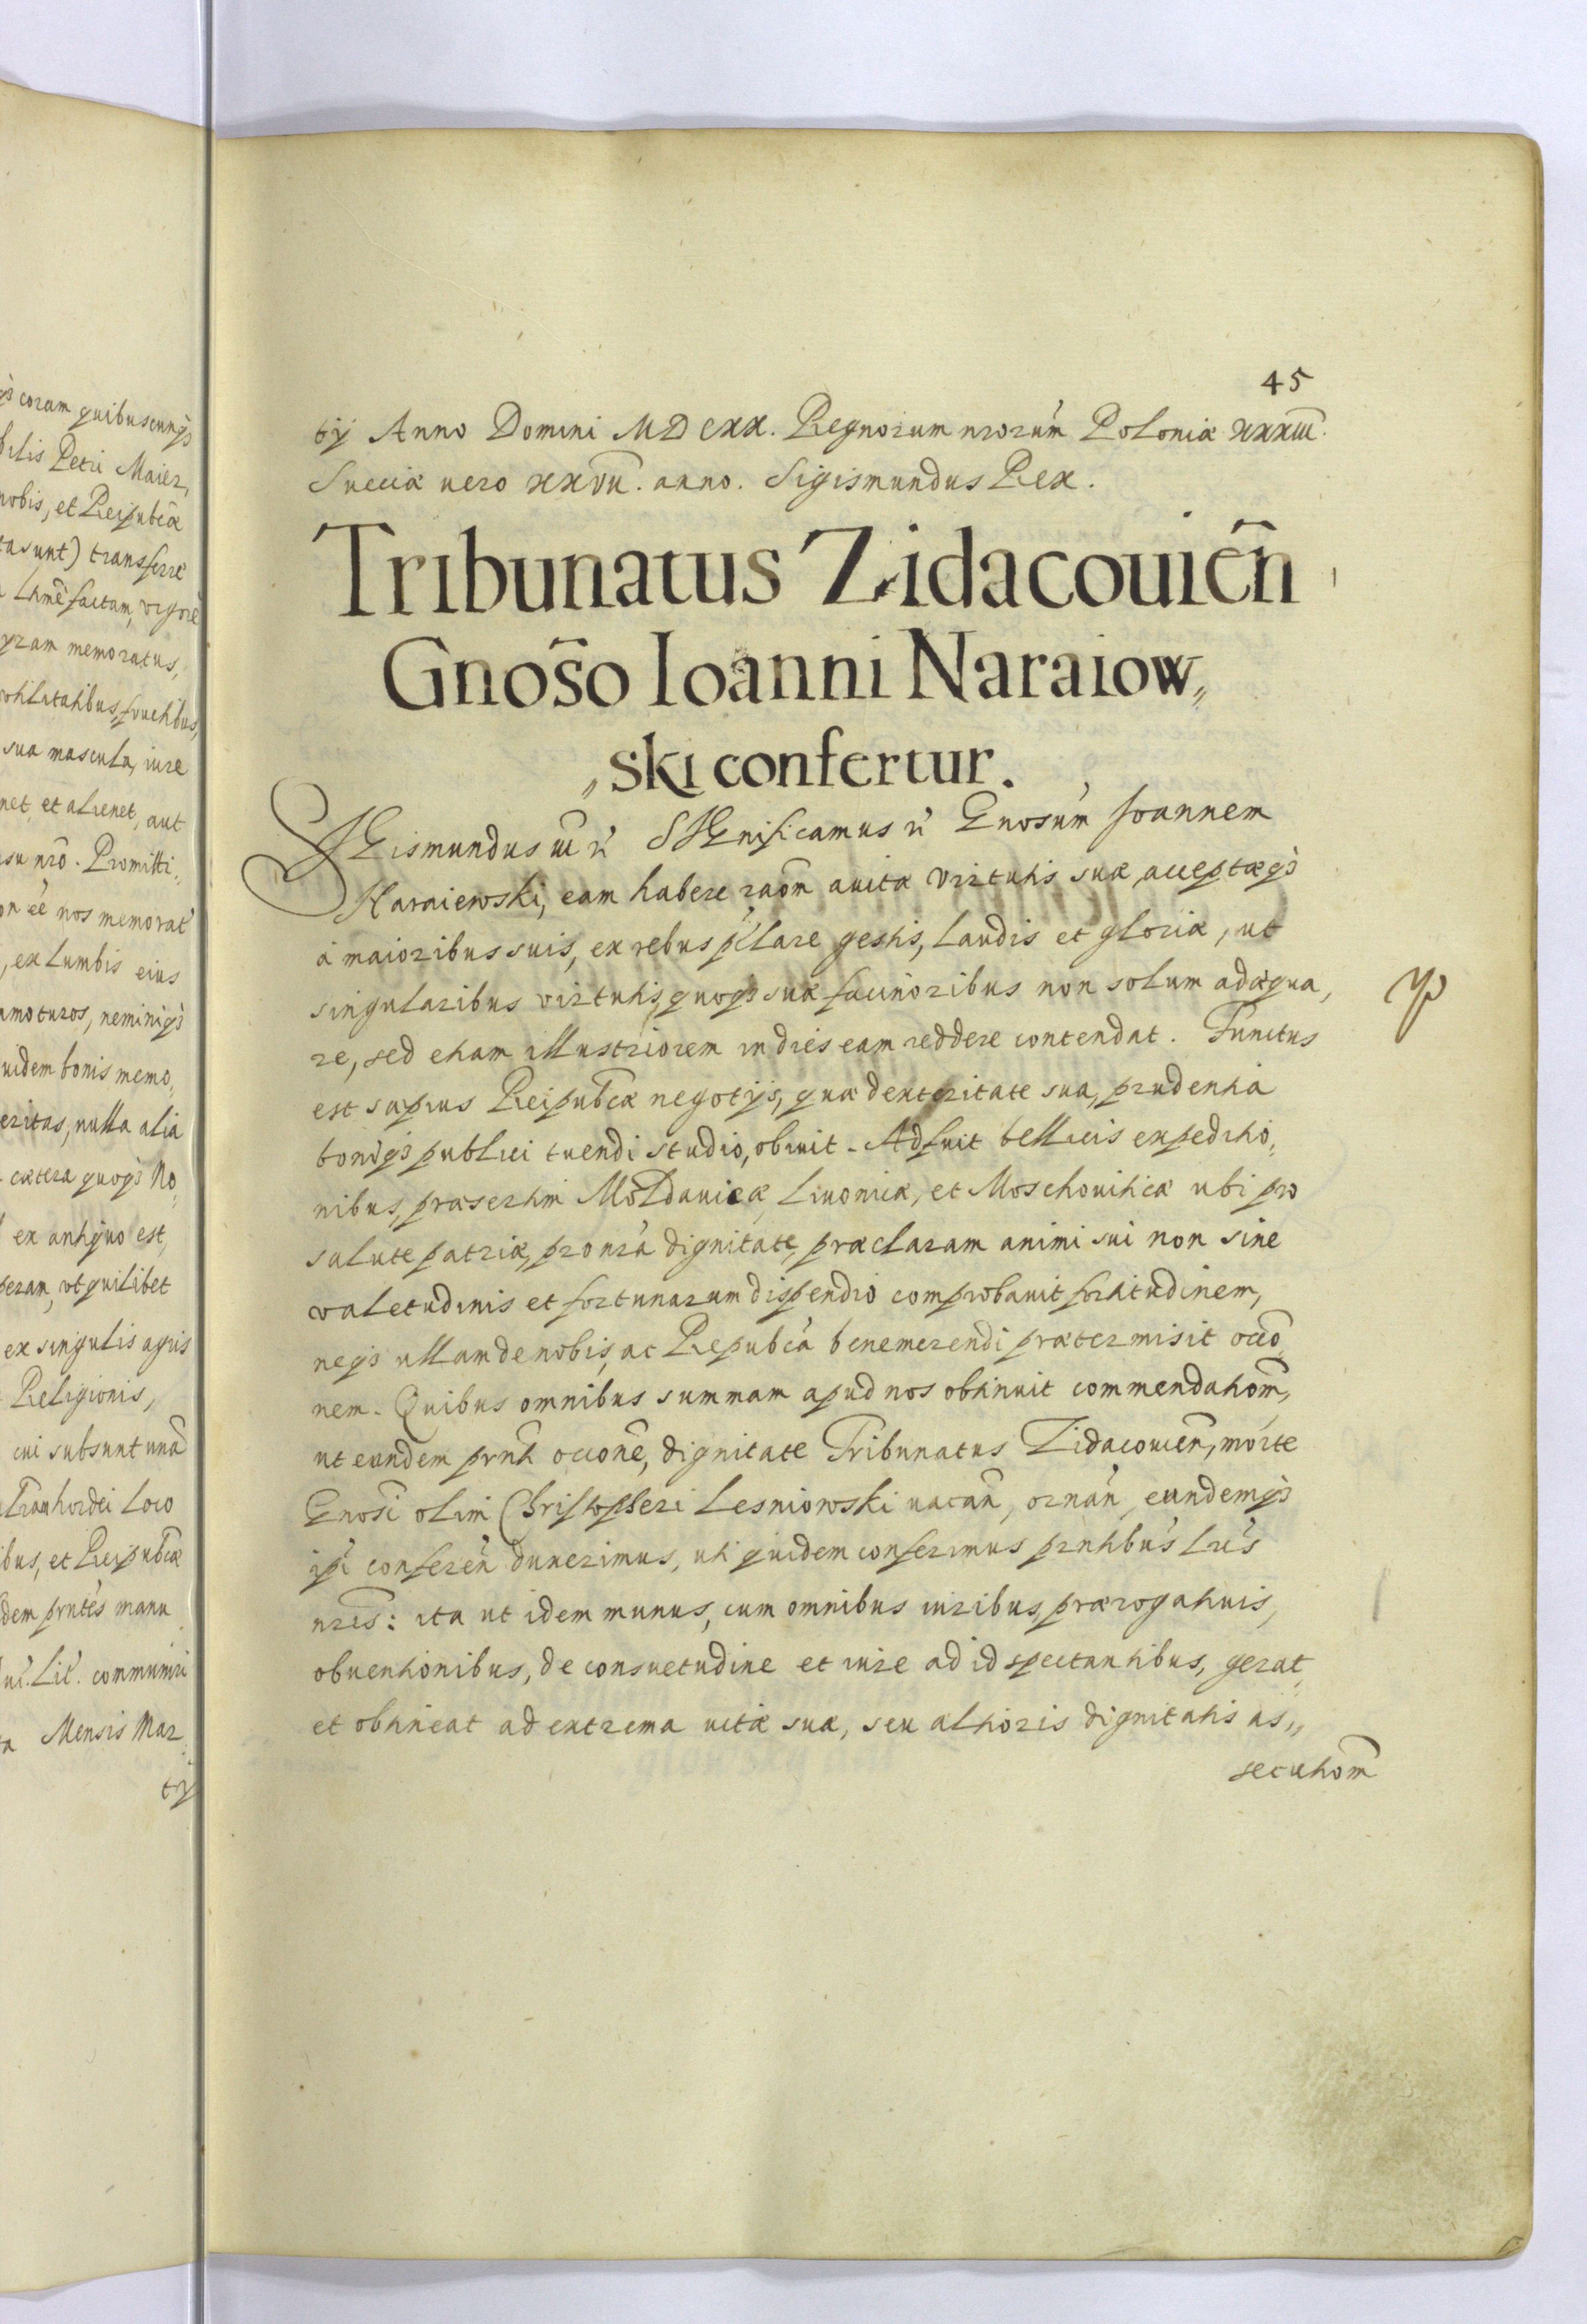 qs coram quibuscunqs
bilis Petri Maier,
nobis, et Reipubcæ
tasunt) transferre
Lhmē factam, vigore
yram memoratus,
vhlitatibus, fructibus,
sua mascula, iure
net, et alienet, aut
su nro. Promitti„
on eē nos memorat
, ex lumbis eius
amoturos, neminiqs
uidem bonis memo„
eritas, nulla alia
cætera quoqs No„
ex antiquo est,
peram, vt quilibet
ex singulis agris
Religionis,
cui subsunt una
Tranhordei loco
ibus, et Reipubcæ
dem prntes manu
ui. Lit. communiri
Mensis Mar„
tÿ
45
tÿ Anno Domini MDCXX. Regnorum nrorum Poloniæ XXXIII.
Sueciæ uero XXVII. anno. Sigismundus Rex.
Tribunatus Zidacouien̄
Gnoso Ioanni Naraiow„
„ski confertur.
SIGismundus III r̃ SIGnificamus r̃ Gnosum Joannem
Naraiewski, eam habere raōm auitæ virtutis suæ, acceptæqs
à maioribus suis, ex rebus pclare gestis, laudis et gloriæ, ut
singularibus virtutis, quoqs suæ facinoribus non solum adæqua,
re, sed etiam illustriorem in dies eam reddere contendat. Functus
est sæpius Reipubcæ negotijs, quæ dexteritate sua, prudentia
boniqs publici tuendi studio, obiuit. Adfuit bellicis expeditio„
nibus, præsertim Moldauicæ, Liuonicæ, et Moschouiticæ ubi pro
salute patriæ, pro nra dignitate, præclaram animi sui non sine
valetudinis et fortunarum dispendio comprobauit fortitudinem,
neqs ullam de nobis, ac Repubca benemerendi prætermisit occō„
nem. Quibus omnibus summam apud nos obtinuit commendatiom̄,
ut eundem prnti occone, dignitate Tribunatus Zidacouien̄, morte
Gnosi olim Christopheri Lesniowski uacan̄, ornan̄, eundemqs
ipi conferen̄ duxerimus, uti quidem conferimus prntibus Lris
nris: ita ut idem munus, cum omnibus iuribus, prærogatiuis,
obuentionibus, de consuetudine et iure ad id spectantibus, gerat,
et obtineat ad extrema uitæ suæ, seu altioris dignitatis as„
secutiom̄